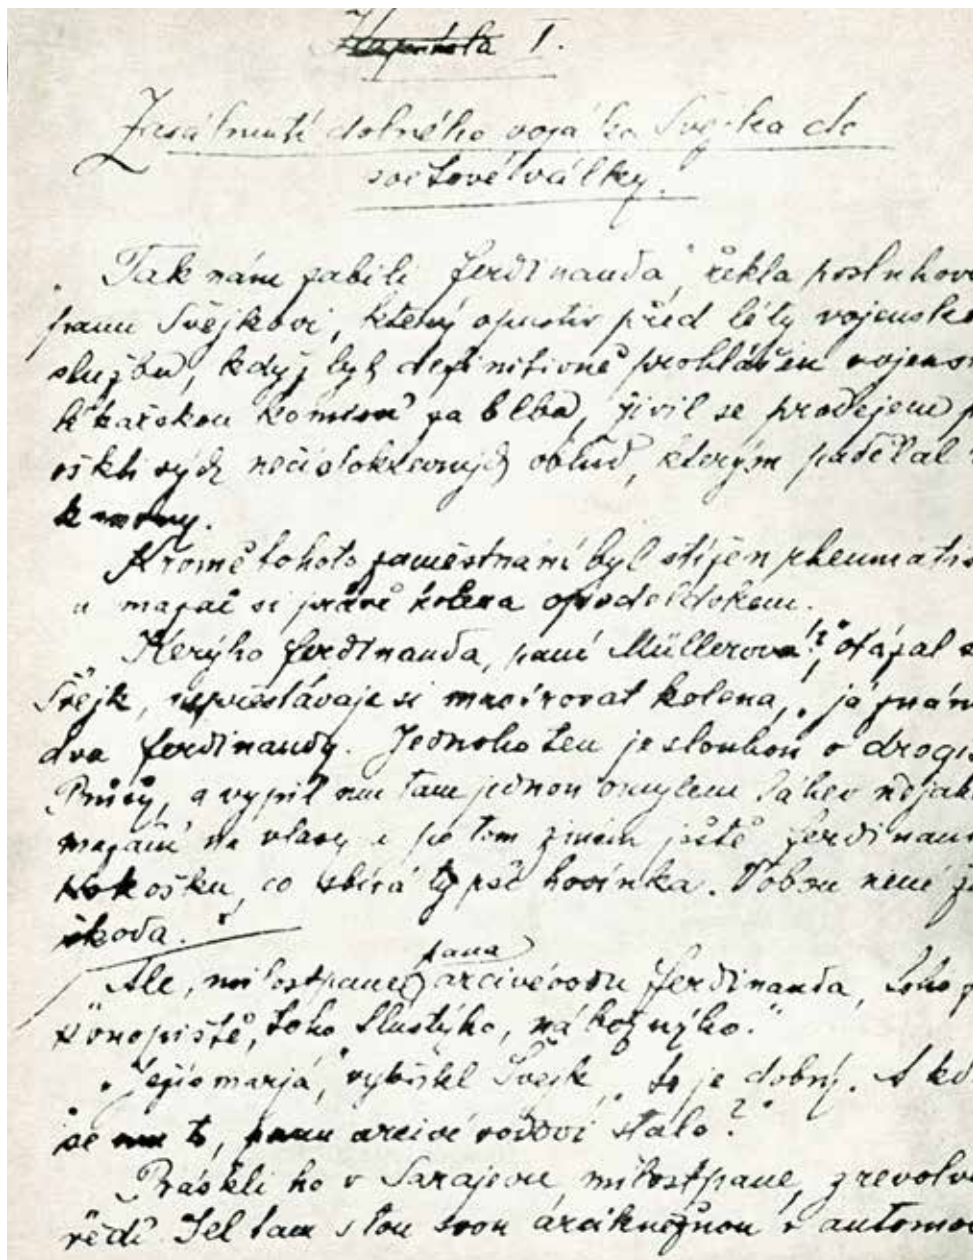 Kapitola I.
Zasáhnutí dobrého vojáka Švejka do
světové války.
Tak nám zabili Ferdinanda", řekla posluhova
panu Švejkovi, který opustiv před léty vojensko
službu, když byl definitivně prohlášen vojensk
lékařskou komisí za blba, živil se prodejem p
ošklivých nečistokrevných oblud, kterým padělal
kmeny.
Kromě tohoto zaměstnání byl stižen rheumatis
a mazal si právě kolena opodeldokem.
Kerýho Ferdinanda, paní Müllerová?", otázal s
Švejk, nepřestávaje si masírovat kolena, „já znám
dva Ferdinandy. Jednoho ten je sluhou u drogis
Průšy, a vypil mu tam jednou omylem láhev nějak
mazání na vlasy a po tom znám ještě Ferdinan
Kokošku, co sbírá ty psí hovínka. Vobou není ž
škoda."
Ale, milostpane, pana arcivévodu Ferdinanda, toho z
Konopiště, toho tlustýho, nábožnýho."
„Ježíšmarjá", vykřikl Švejk, „to je dobrý. A kd
se mu to, panu arcivévodovi stalo?"
Práskli ho v Sarajevu, milostpane, z revolv
vědí. Jel tam s tou svou arcikněžnou v automo